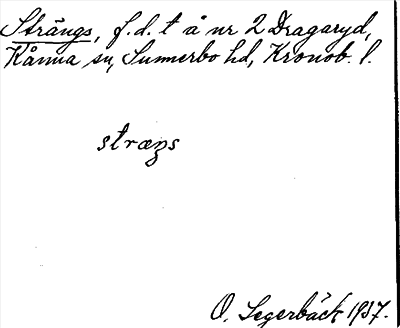 Strängs, f.d. t å nr 2 Dragaryd,
Kånna sn, Sunnerbo hd, Kronob. l.
stræŋs
O. Segerbäck 1937.